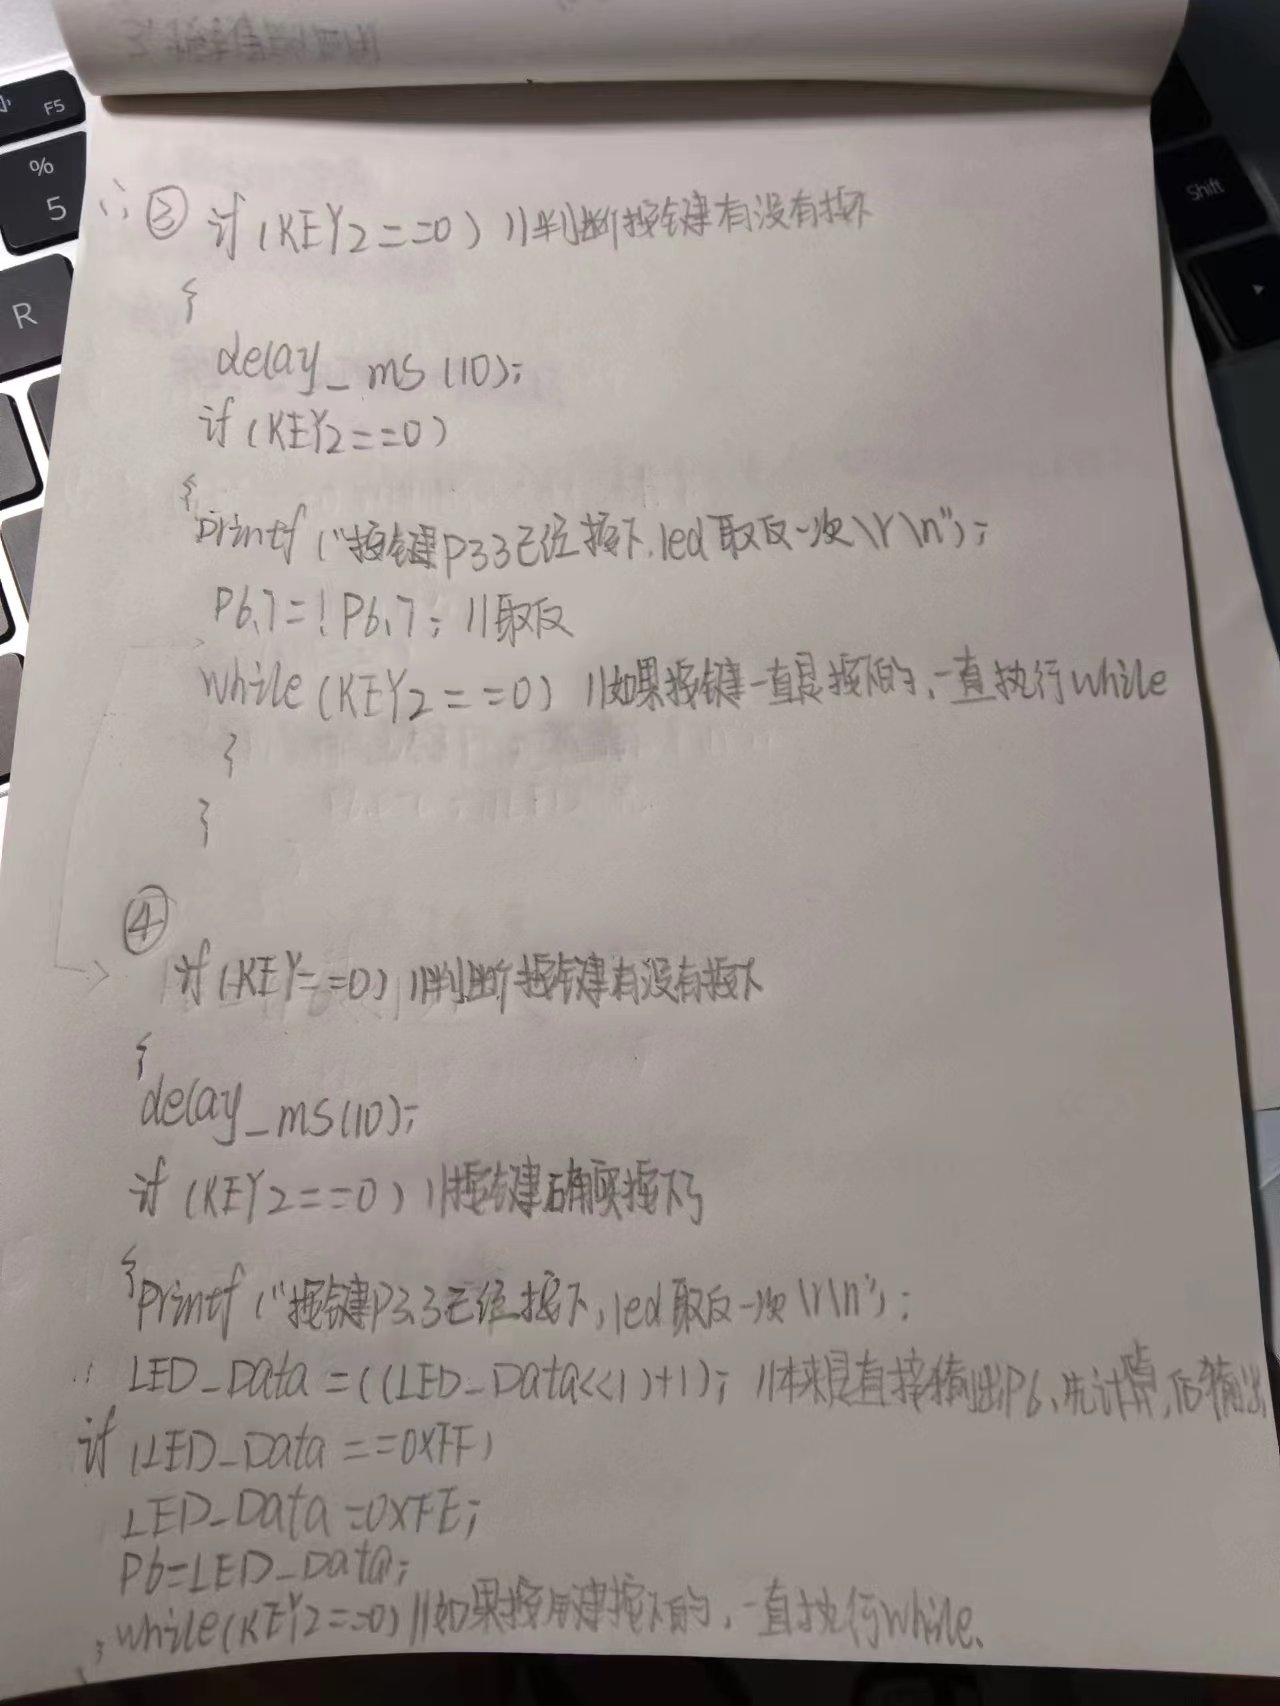 ③ if (KEY2==0) //判断按键有没有按下
{
delay_ms (10);
if (KEY2==0)
{
printf ("按键P33已经按下,led取反一次\r\n");
P6.7=!P6.7; //取反
while (KEY2==0) //如果按键一直是按下的,一直执行while
}
}
④
if (KEY==0) //判断按键有没有按下
{
delay_ms(10);
if (KEY2==0) //按键确实按下了
{
printf ("按键P3.3已经按下,led取反一次\r\n");
LED_Data=((LED_Data<<1)+1); //本来是直接输出P6、先计算,后输出
if (LED_Data==0xFF)
LED_Data=0xFE;
P6=LED_Data;
while(KEY2==0) //如果按键按下的,一直执行while、
}